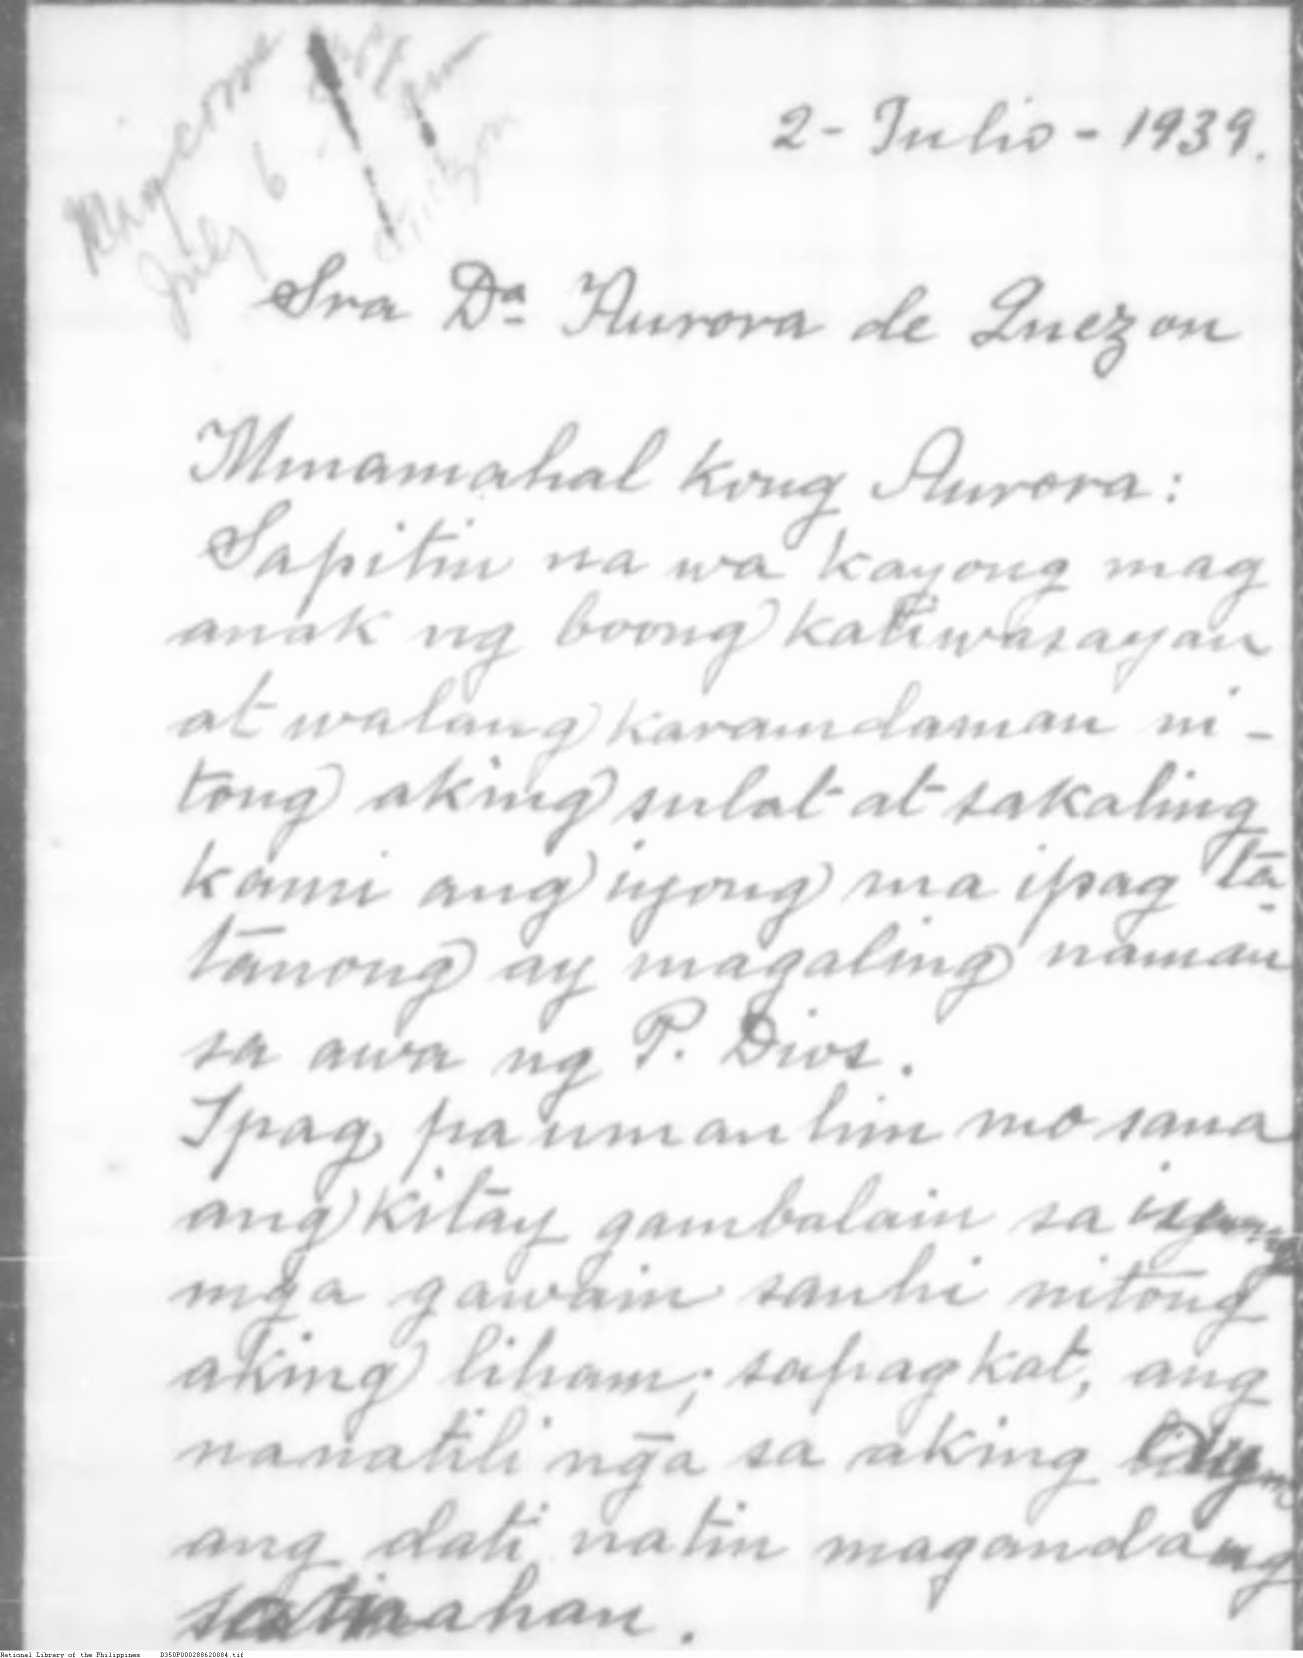 May come
July 6
2 - Julio - 1939.
Sra Dª Aurora de Quezon
Minamahal kong Aurora:
Sapitin na wa kayong mag
anak ng boong katiwasayan
at walang karamdaman ni -
tong aking sulat at sakaling
kami ang iyong ma ipag ta
tanong ay magaling naman
sa awa ng P. Dios.
Ipag pa umanhin mo sana
ang kitay gambalain sa iyong
mga gawain sanhi nitong
aking liham; sapagkat, ang
nanatili nga sa aking
ang dati natin magandang
National Library of the Philippines D350P000288620084.tif